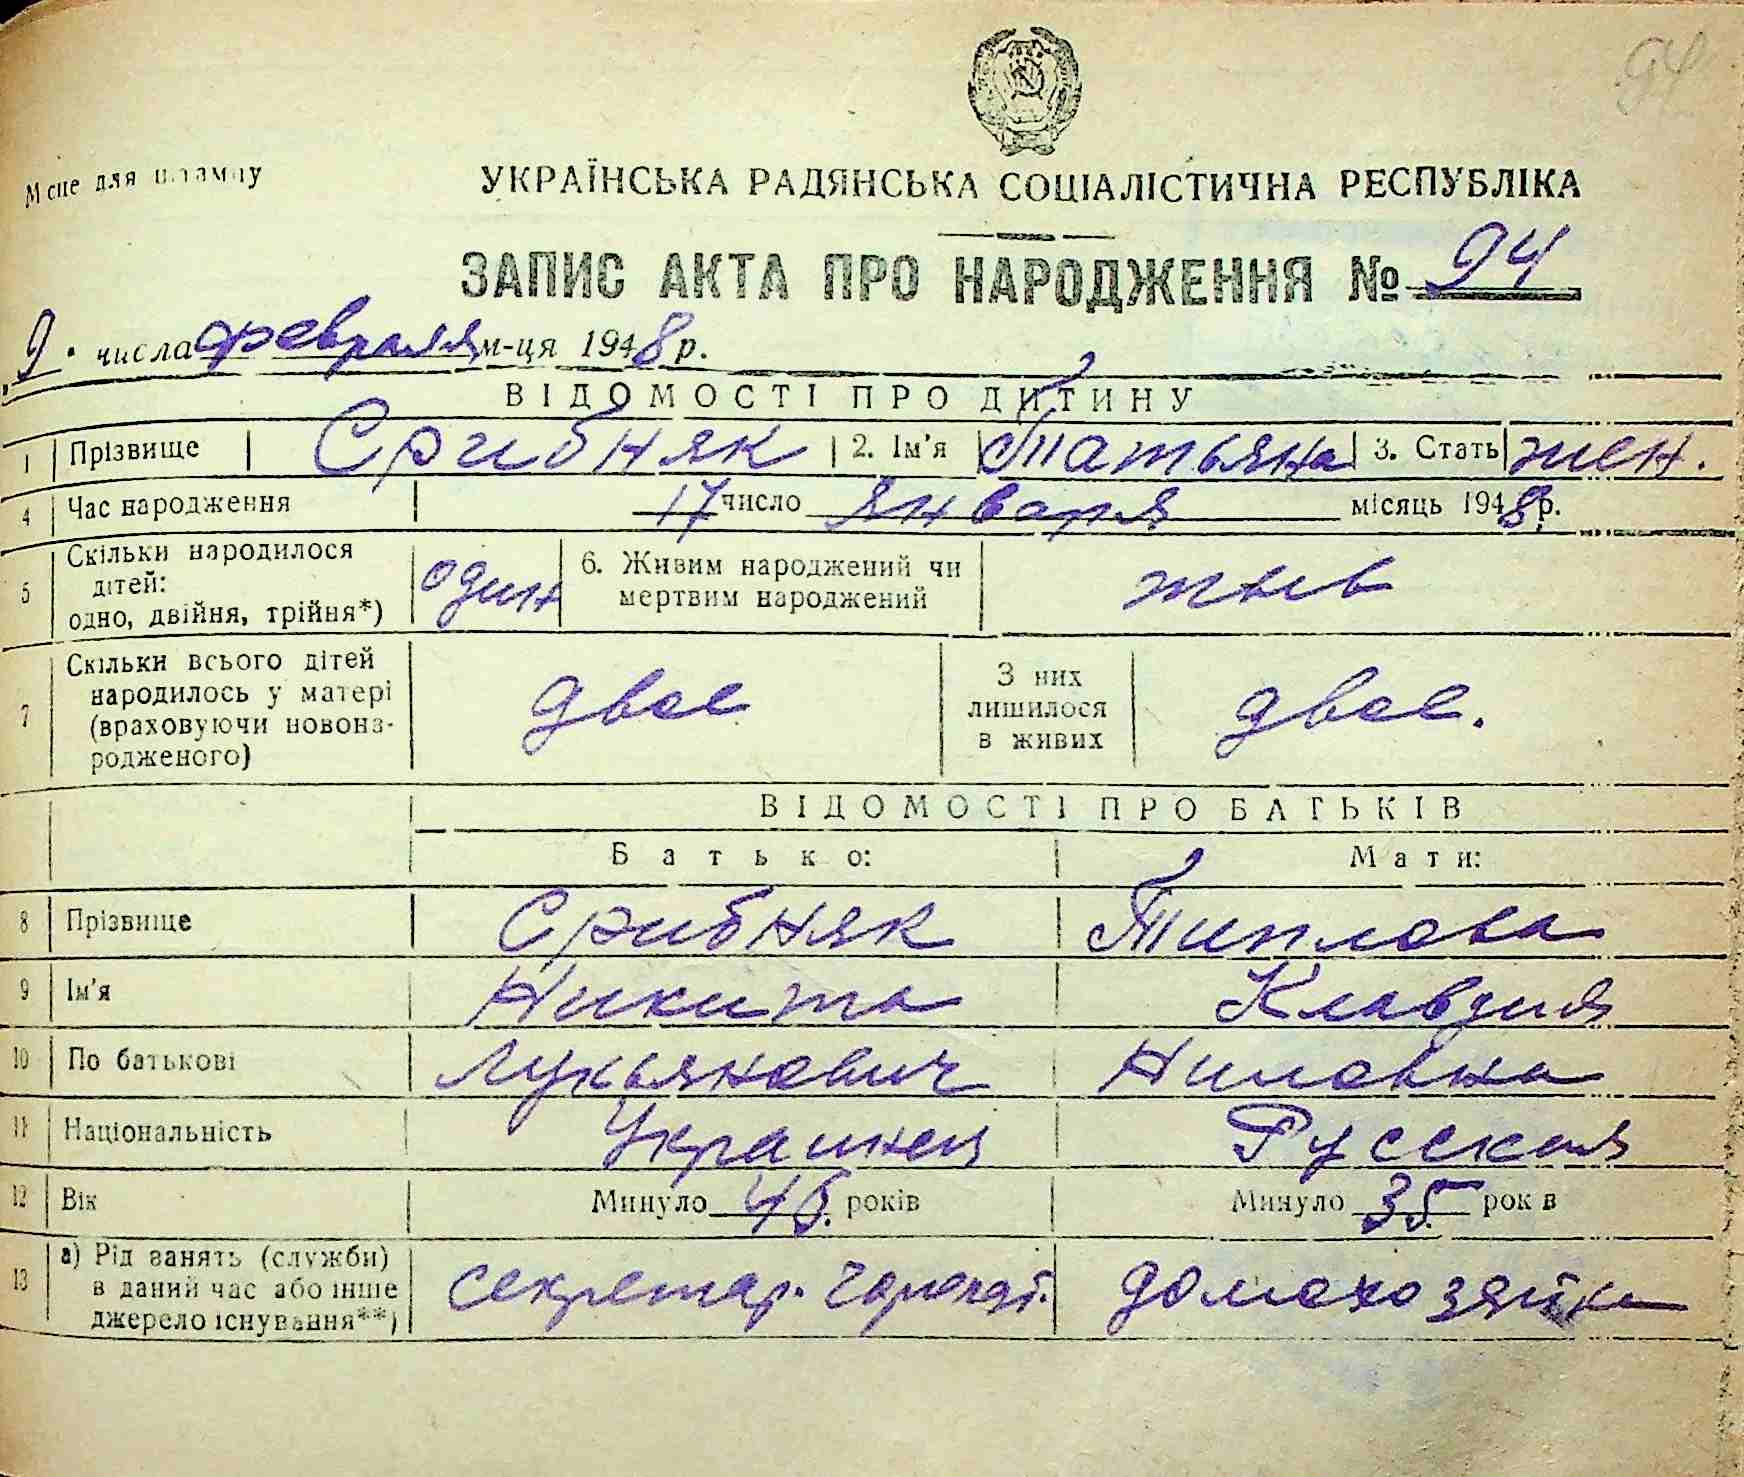 94
Місце для штампу
УКРАЇНСЬКА РАДЯНСЬКА СОЦІАЛІСТИЧНА РЕСПУБЛІКА
ЗАПИС АКТА ПРО НАРОДЖЕННЯ № 94
9. числа февраля м-ця 1948 р.
ВІДОМОСТІ ПРО ДИТИНУ
1 Прізвище Срибняк 2. Ім'я Татьяна 3. Стать жен.
4 Час народження 17 число января місяць 1948 р.
5 Скільки народилося дітей: одно, двійня, трійня*) один 6. Живим народжений чи мертвим народжений жыв
7 Скільки всього дітей народилось у матері (враховуючи новонародженого) двое З них лишилося в живих двое.
ВІДОМОСТІ ПРО БАТЬКІВ
Батько: Мати:
8 Прізвище Срибняк Типлова
9 Ім'я Никита Клавдия
10 По батькові Лукьянович Ниловна
11 Національність Украинец Русская
12 Вік Минуло років Минуло 35 років
13 а) Рід занять (служби) в даний час або інше джерело існування**) секретар. домохозяйка